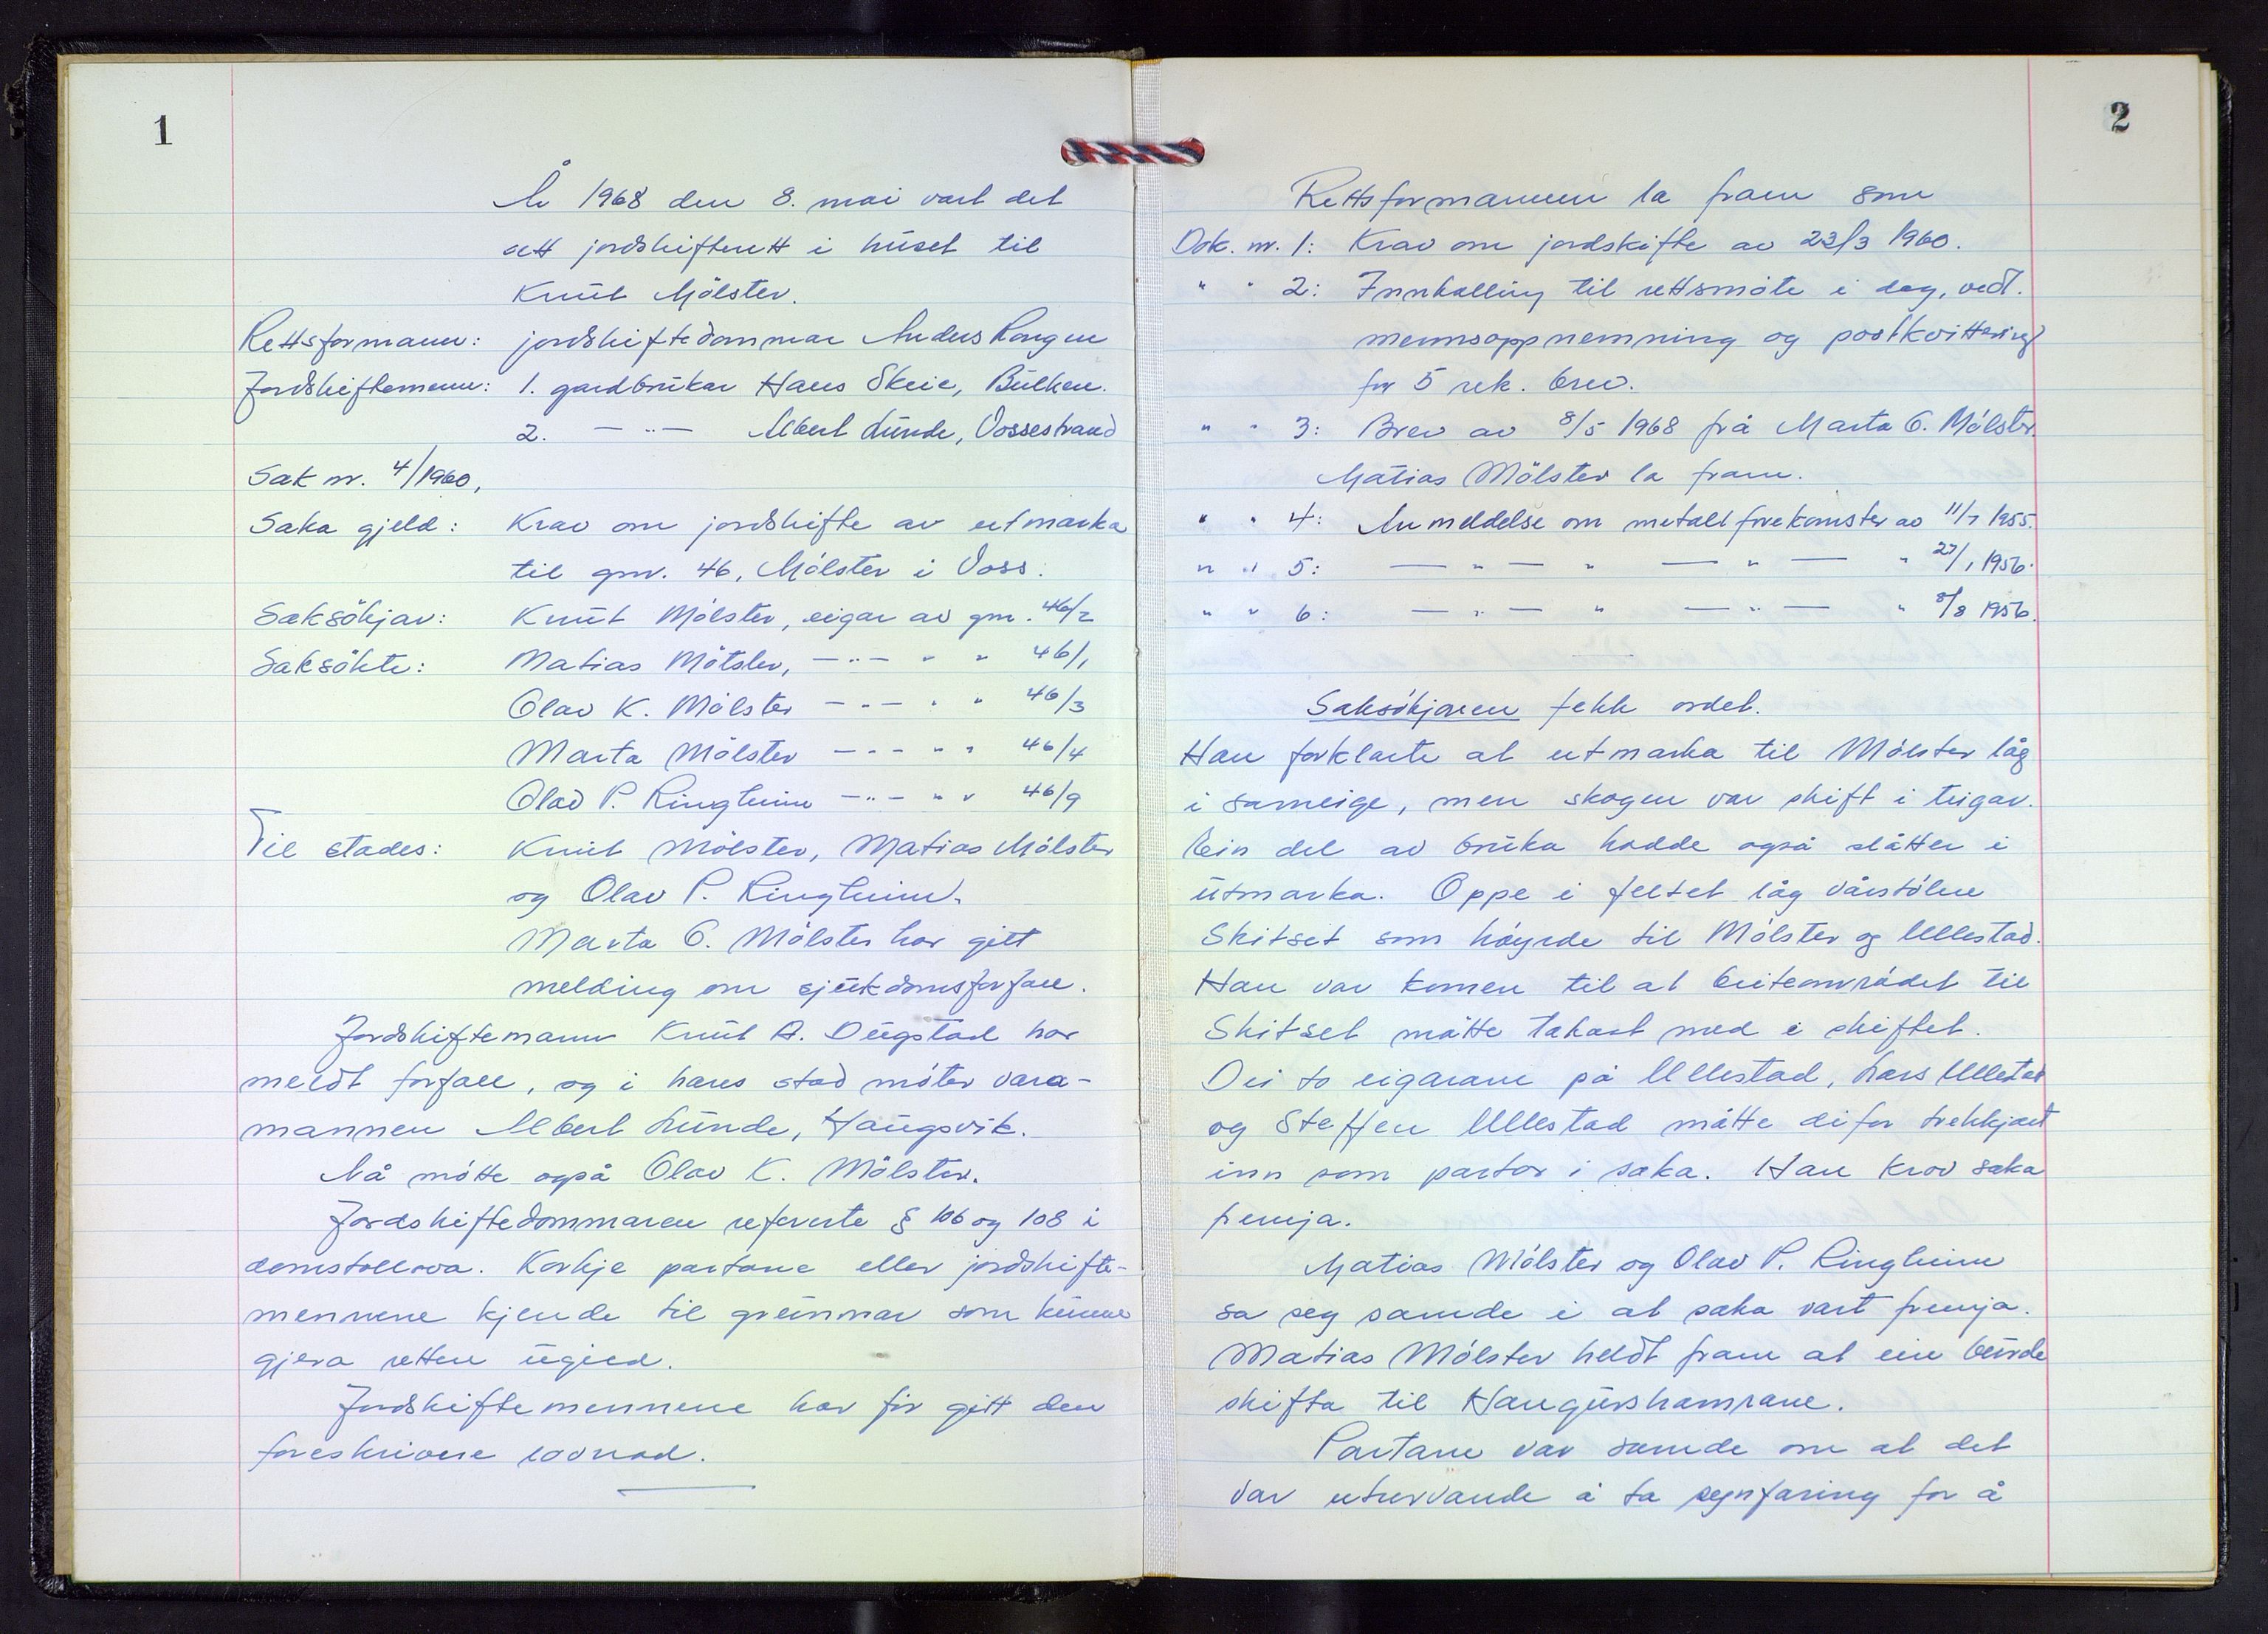 1
År 1968 den 8. mai vart det
sett jordskifterett i huset til
Knut Mölster.
Rettsformann: jordskiftedommar Anders Rongen
Jordskiftemenn: 1. gardbrukar Hans Skeie, Bulken.
2. — " — Albert Lunde, Vossestrand
Sak nr. 4/1960,
Saka gjeld: Krav om jordskifte av utmarka
til gnr. 46, Mölster i Voss.
Saksökjar: Knut Mölster, eigar av gnr. 46/2
Saksökte: Matias Mölster, — " — " " 46/1
Olav K. Mölster — " — " " 46/3
Marta Mölster — " — " " 46/4
Olav P. Ringheim — " — " " 46/9
Til stades: Knut Mölster, Matias Mölster
og Olav P. Ringheim.
Marta G. Mölster har gitt
melding om sjukdomsforfall.
Jordskiftemann Knut A. Dugstad har
meldt forfall, og i hans stad möter vara-
mannen Albert Lunde, Haugsvik.
Nå mötte også Olav K. Mölster.
Jordskiftedommaren refererte § 106 og 108 i
domstollova. Korkje partane eller jordskifte-
mennene kjende til grunnar som kunne
gjera retten ugild.
Jordskiftemennene har för gitt den
foreskrivne lovnad.
2
Rettsformannen la fram som
Dok. nr. 1: Krav om jordskifte av 23/3 1960.
" " 2: Innkalling til rettsmöte i dag, vedl.
mennsoppnemning og postkvittering
for 5 rek. brev.
" " 3: Brev av 8/5 1968 frå Marta G. Mölster.
Matias Mölster la fram.
" " 4: Anmeldelse om metallforekomster av 11/7 1955.
" " 5: — " — " — " — " 27/1 1956.
" " 6: — " — " — " — " 8/8 1956.
Saksökjaren fekk ordet.
Han forklarte at utmarka til Mölster låg
i sameige, men skogen var skift i teigar.
Ein del av bruka hadde også slåtter i
utmarka. Oppe i feltet låg vårstölen
Skitset som höyrde til Mölster og Ullestad.
Han var komen til at beiteområdet til
Skitset måtte takast med i skiftet.
Dei to eigarane på Ullestad, Lars Ullestad
og Steffen Ullestad måtte difor trekkjast
inn som partar i saka. Han krov saka
fremja.
Matias Mölster og Olav P. Ringheim
sa seg samde i at saka vart fremja.
Matias Mölster heldt fram at ein burde
skifta til Haugurshamrane.
Partane var samde om at det
var uturvande å ta synfaring for å